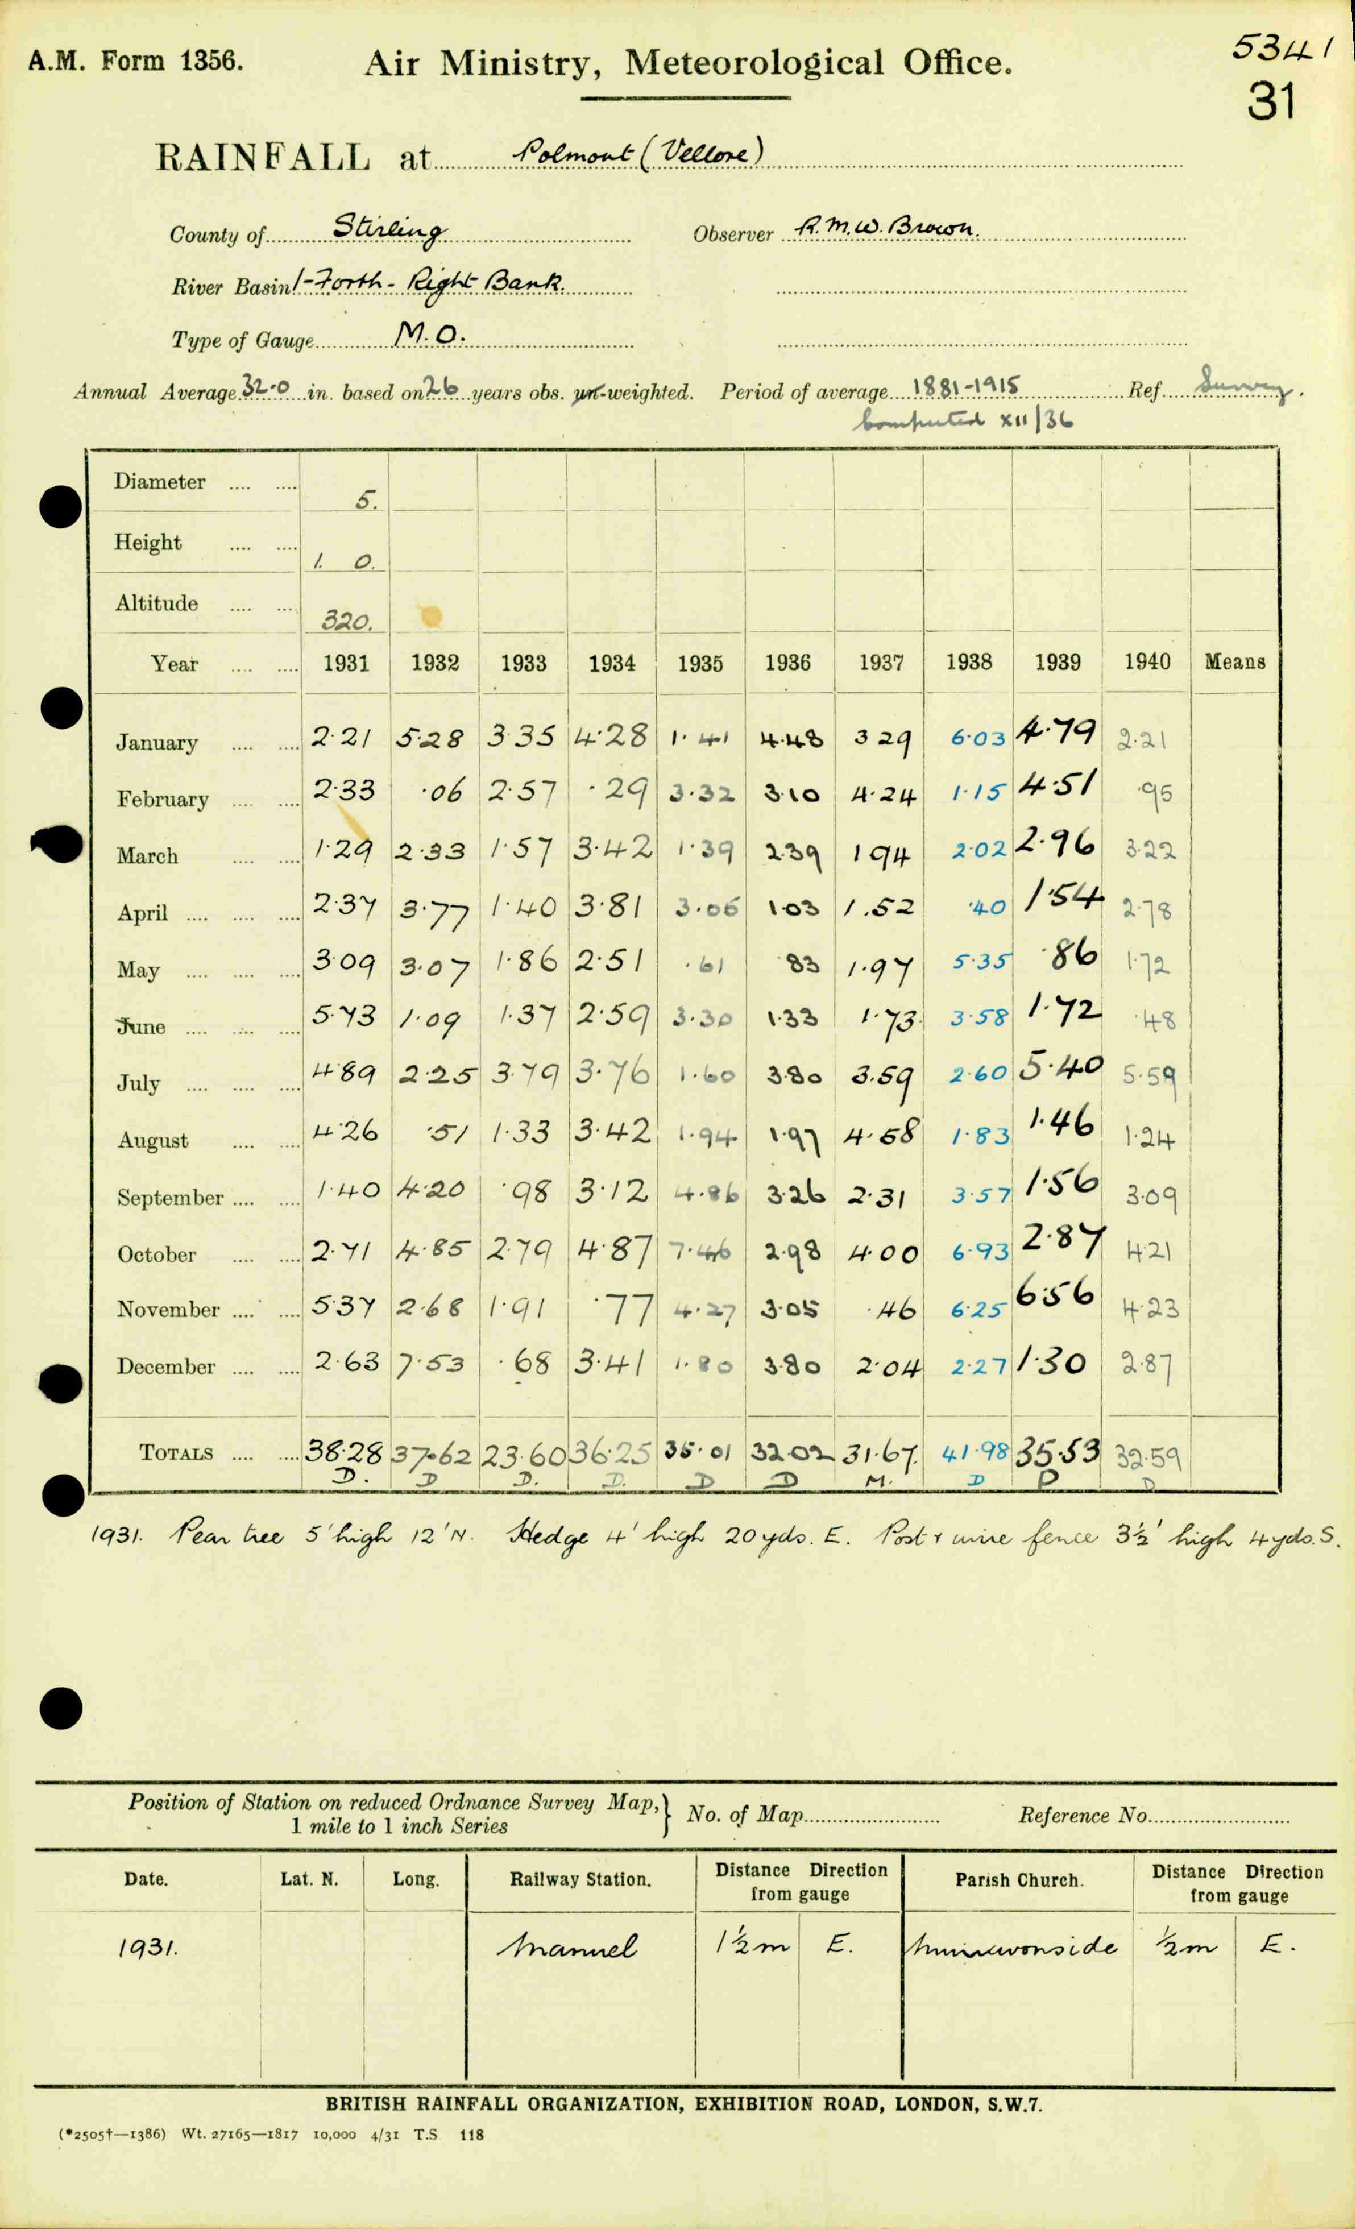 5341
A.M. Form 1356. Air Ministry, Meteorological Office.
31
RAINFALL at Polmont (Vellore)
County of Stirling Observer R.M.W. Brown.
River Basin 1-Forth - Right Bank.
Type of Gauge M.O.
Annual Average 32.0 in. based on 26 years obs. un-weighted. Period of average 1881-1915 Ref. Survey.
Computed XII/36
Diameter .... .... 5.
Height .... .... 1. 0.
Altitude .... .... 320.
Year .... .... 1931 1932 1933 1934 1935 1936 1937 1938 1939 1940 Means
January .... .... 2.21 5.28 3.35 4.28 1.41 4.48 3.29 6.03 4.79 2.21
February .... .... 2.33 .06 2.57 .29 3.32 3.10 4.24 1.15 4.51 .95
March .... .... 1.29 2.33 1.57 3.42 1.39 2.39 1.94 2.02 2.96 3.22
April .... .... .... 2.37 3.77 1.40 3.81 3.06 1.03 1.52 .40 1.54 2.78
May .... .... .... 3.09 3.07 1.86 2.51 .61 .83 1.97 5.35 .86 1.72
June .... .... .... 5.73 1.09 1.37 2.59 3.30 1.33 1.73 3.58 1.72 .48
July .... .... .... 4.89 2.25 3.79 3.76 1.60 3.80 3.59 2.60 5.40 5.59
August .... .... 4.26 .51 1.33 3.42 1.94 1.97 4.58 1.83 1.46 1.24
September .... .... 1.40 4.20 .98 3.12 4.86 3.26 2.31 3.57 1.56 3.09
October .... .... 2.71 4.85 2.79 4.87 7.46 2.98 4.00 6.93 2.87 4.21
November .... .... 5.37 2.68 1.91 .77 4.27 3.05 .46 6.25 6.56 4.23
December .... .... 2.63 7.53 .68 3.41 1.80 3.80 2.04 2.27 1.30 2.87
TOTALS .... .... 38.28 37.62 23.60 36.25 35.01 32.02 31.67 41.98 35.53 32.59
D. D D. D. D D M. D D D
1931. Pear tree 5' high 12' N. Hedge 4' high 20 yds. E. Post & wire fence 3½' high 4 yds. S.
Position of Station on reduced Ordnance Survey Map, } No. of Map Reference No.
1 mile to 1 inch Series
Date. Lat. N. Long. Railway Station. Distance Direction from gauge Parish Church. Distance Direction from gauge
1931. Manuel 1½ m E. Muiravonside ½ m E.
BRITISH RAINFALL ORGANIZATION, EXHIBITION ROAD, LONDON, S.W.7.
(*2505†—1386) Wt. 27165—1817 10,000 4/31 T.S 118